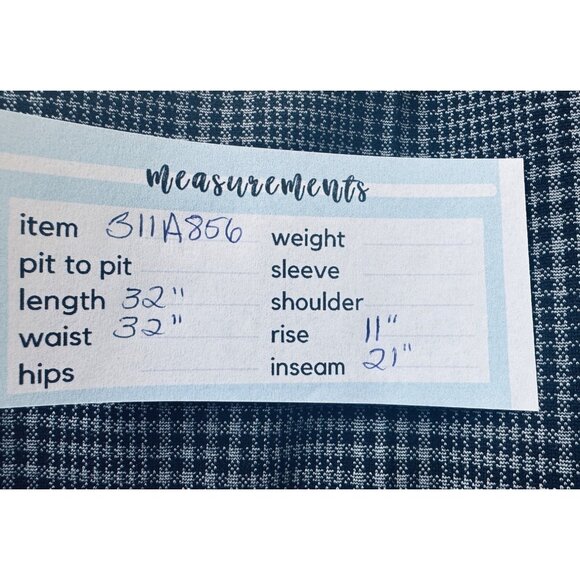 measurements
item 311A856
pit to pit
length 32"
waist 32"
hips
weight
sleeve
shoulder
rise 11"
inseam 21"